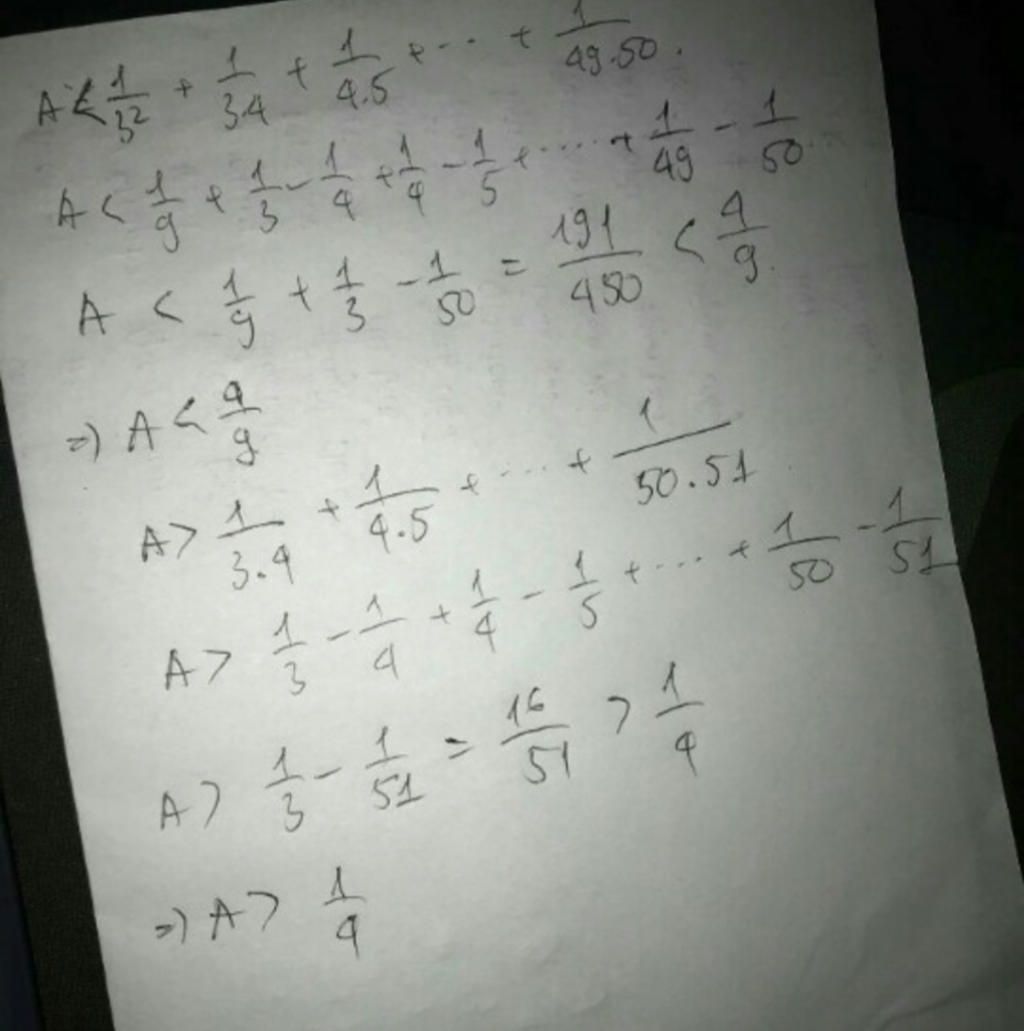 A < 1/3² + 1/3.4 + 1/4.5 + ... + 1/49.50.
A < 1/9 + 1/3 - 1/4 + 1/4 - 1/5 + ..... + 1/49 - 1/50
A < 1/9 + 1/3 - 1/50 = 191/450 < 4/9.
=) A < 4/9
A > 1/3.4 + 1/4.5 + ... + 1/50.51
A > 1/3 - 1/4 + 1/4 - 1/5 + ... + 1/50 - 1/51
A > 1/3 - 1/51 = 16/51 > 1/4
=) A > 1/4